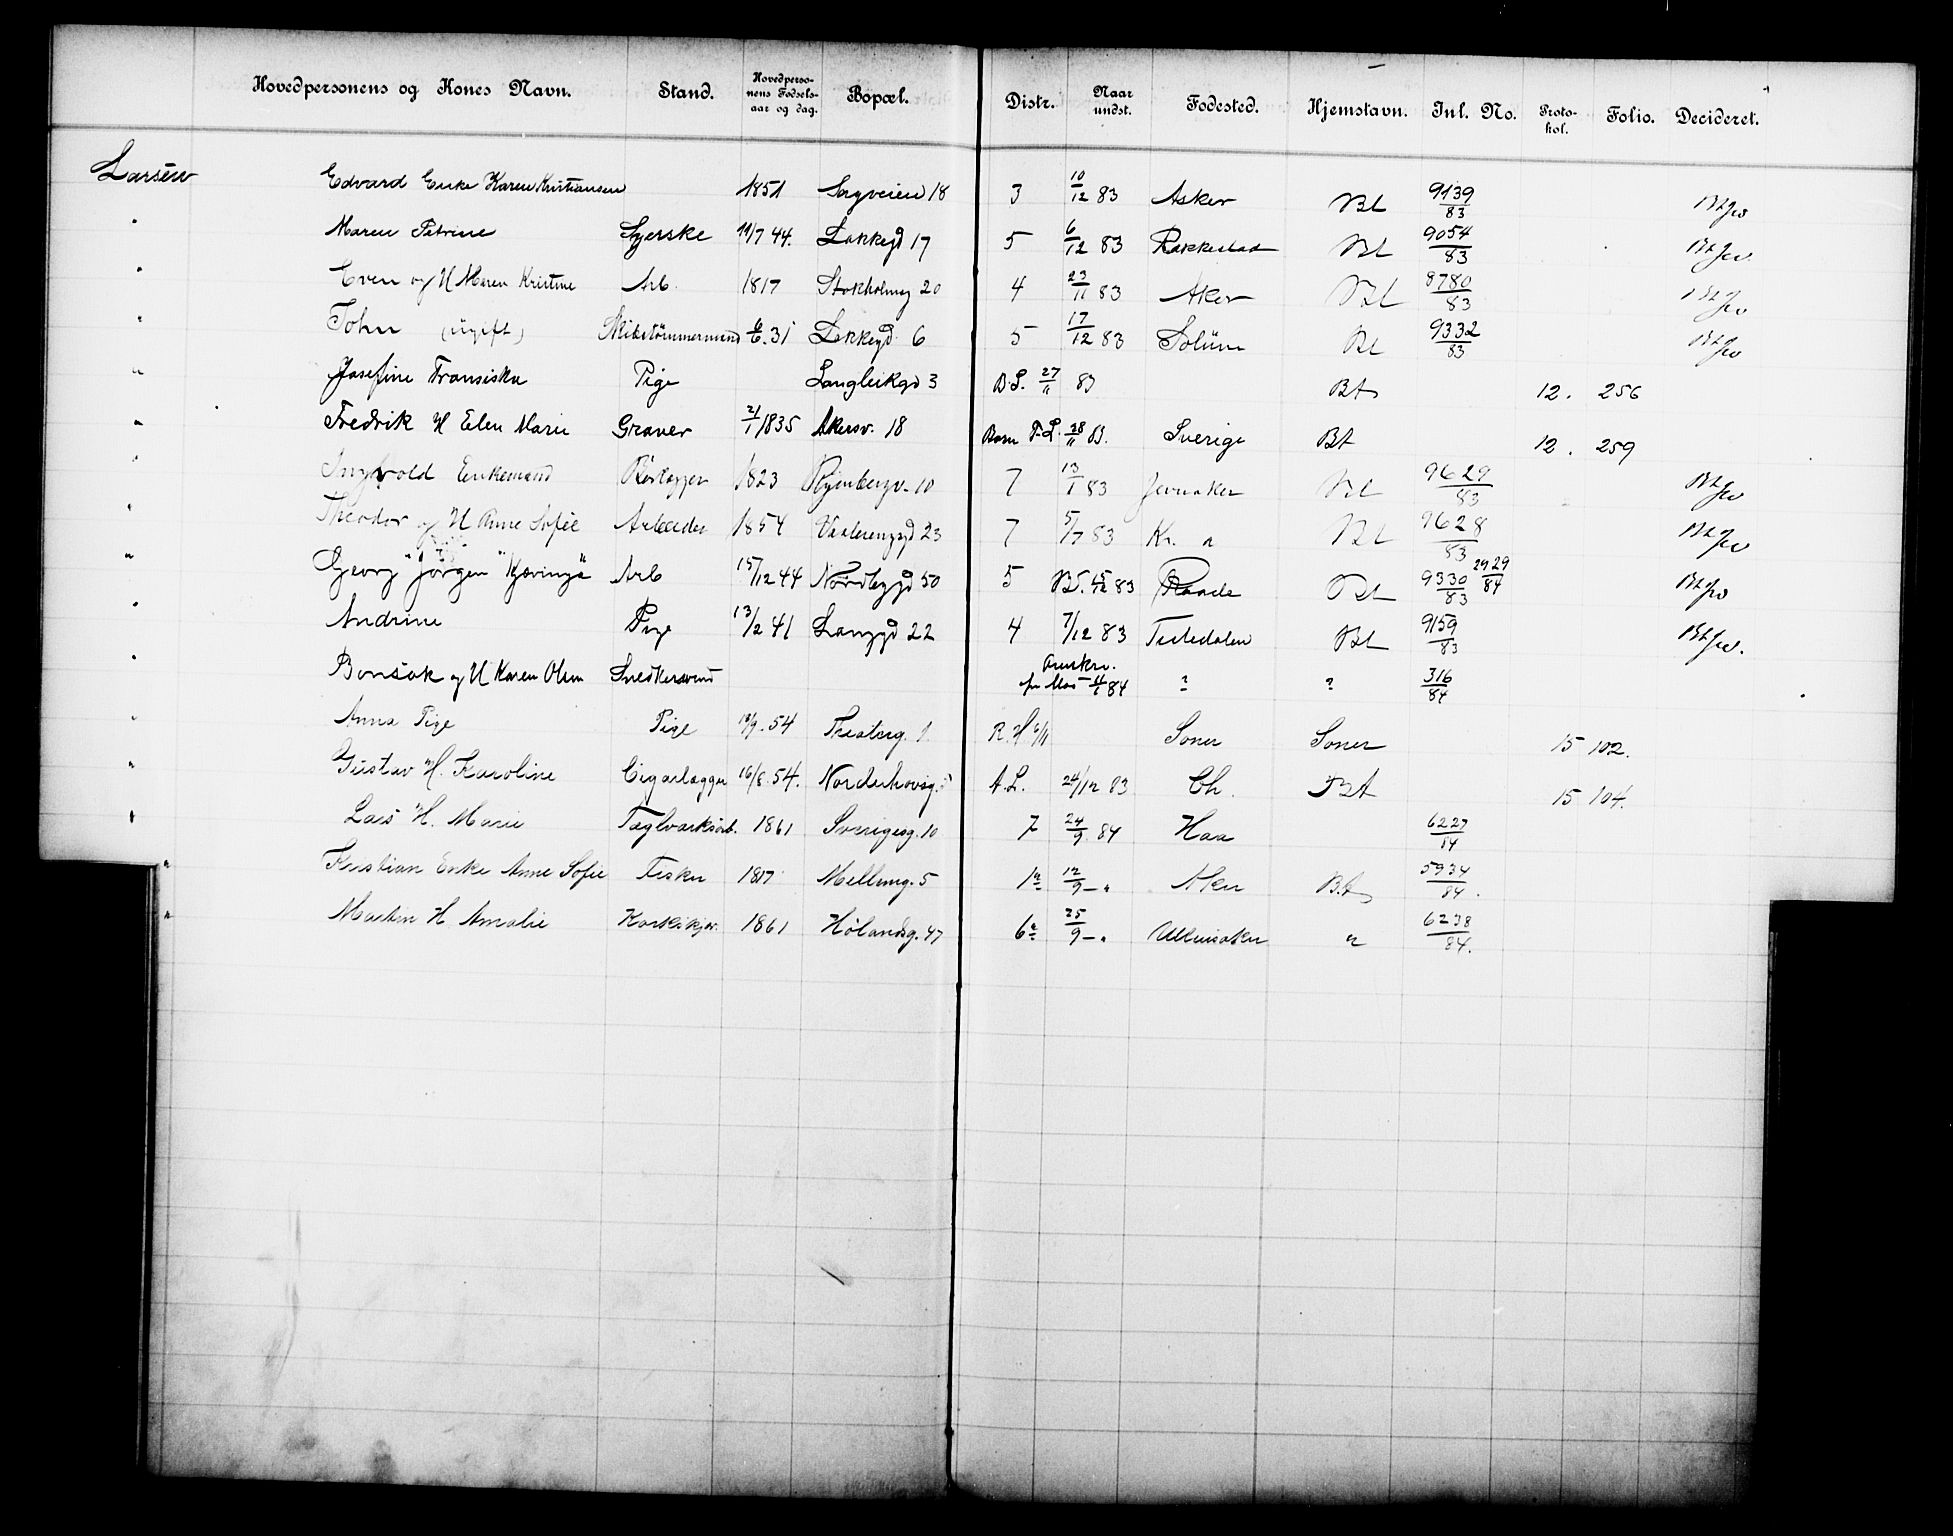 Hovedpersonens og Kones Navn. Stand. Hovedpersonens Fødselsaar og dag. Bopæl. Distr. Naar undst. Fødested. Hjemstavn. Inl. No. Protokol. Folio. Decideret.
Larsen Edvard Enke Karen Kristiansen 1851 Sagveien 18 3 10/12 83 Asker Bt 9139/83
" Maren Petrine Syerske 11/7 44. Løkkegd 17 5 6/12 83 Rakkestad Bt 9054/83
" Even og H Maren Kristine Arb. 1817 Stokholmg 20 4 23/11 83 Aker Bt 8780/83
" John (ugift) Skibstømmermand 31 Løkkegd 6 5 17/12 83 Solum Bt 9332/83
" Josefine Fransiska Pige Langleikgd 3 B.L. 27/11 83 Bt 12. 256
" Fredrik H Elen Marie Graver 21/1 1835 Akersv. 18 Barn F.L. 28/11 Sverige Bt 12. 259
" Enkemand 1823 10 7 13/1 83 Jevnaker Bt 9629/83
" Theodor og H Anne Sofie Arbeider 1854 Vaalerenggd 23 7 5/7 83 Kr. a Bt 9628/83
" Georg "Jörgen" Arb 15/12 44 Nordbygd 50 5 15/12 83 Raade Bt 9330/83 2929/84
" Andrine Pige 13/2 41 Langgd 22 4 7/12 83 Tistedalen Bt 9159/83
" Bonsak og H Karen Olsen Snedkersvend 84 ? ? 316/84
" Anna Pige Pige 54 Theaterg. 1 R.H Soner Soner 15 102.
" Gustav H. Karoline Cigarlægger 16/8. 54. Norderhovsg. A.L. 24/12 83 Ch. BA 15 104.
" Lars H. Marie Teglværksarb. 1861 Sverigesg. 10 7 24/9. 84 Haa 6227/84
" Kristian Enke Anne Sofie Fisker 1817 Mellumg. 5 12/9 - " Aker B.A 5934/84.
" Martin H Amalie 1861 Hölandsg. 47 25/9 - " Ullensaker " 6238/84.